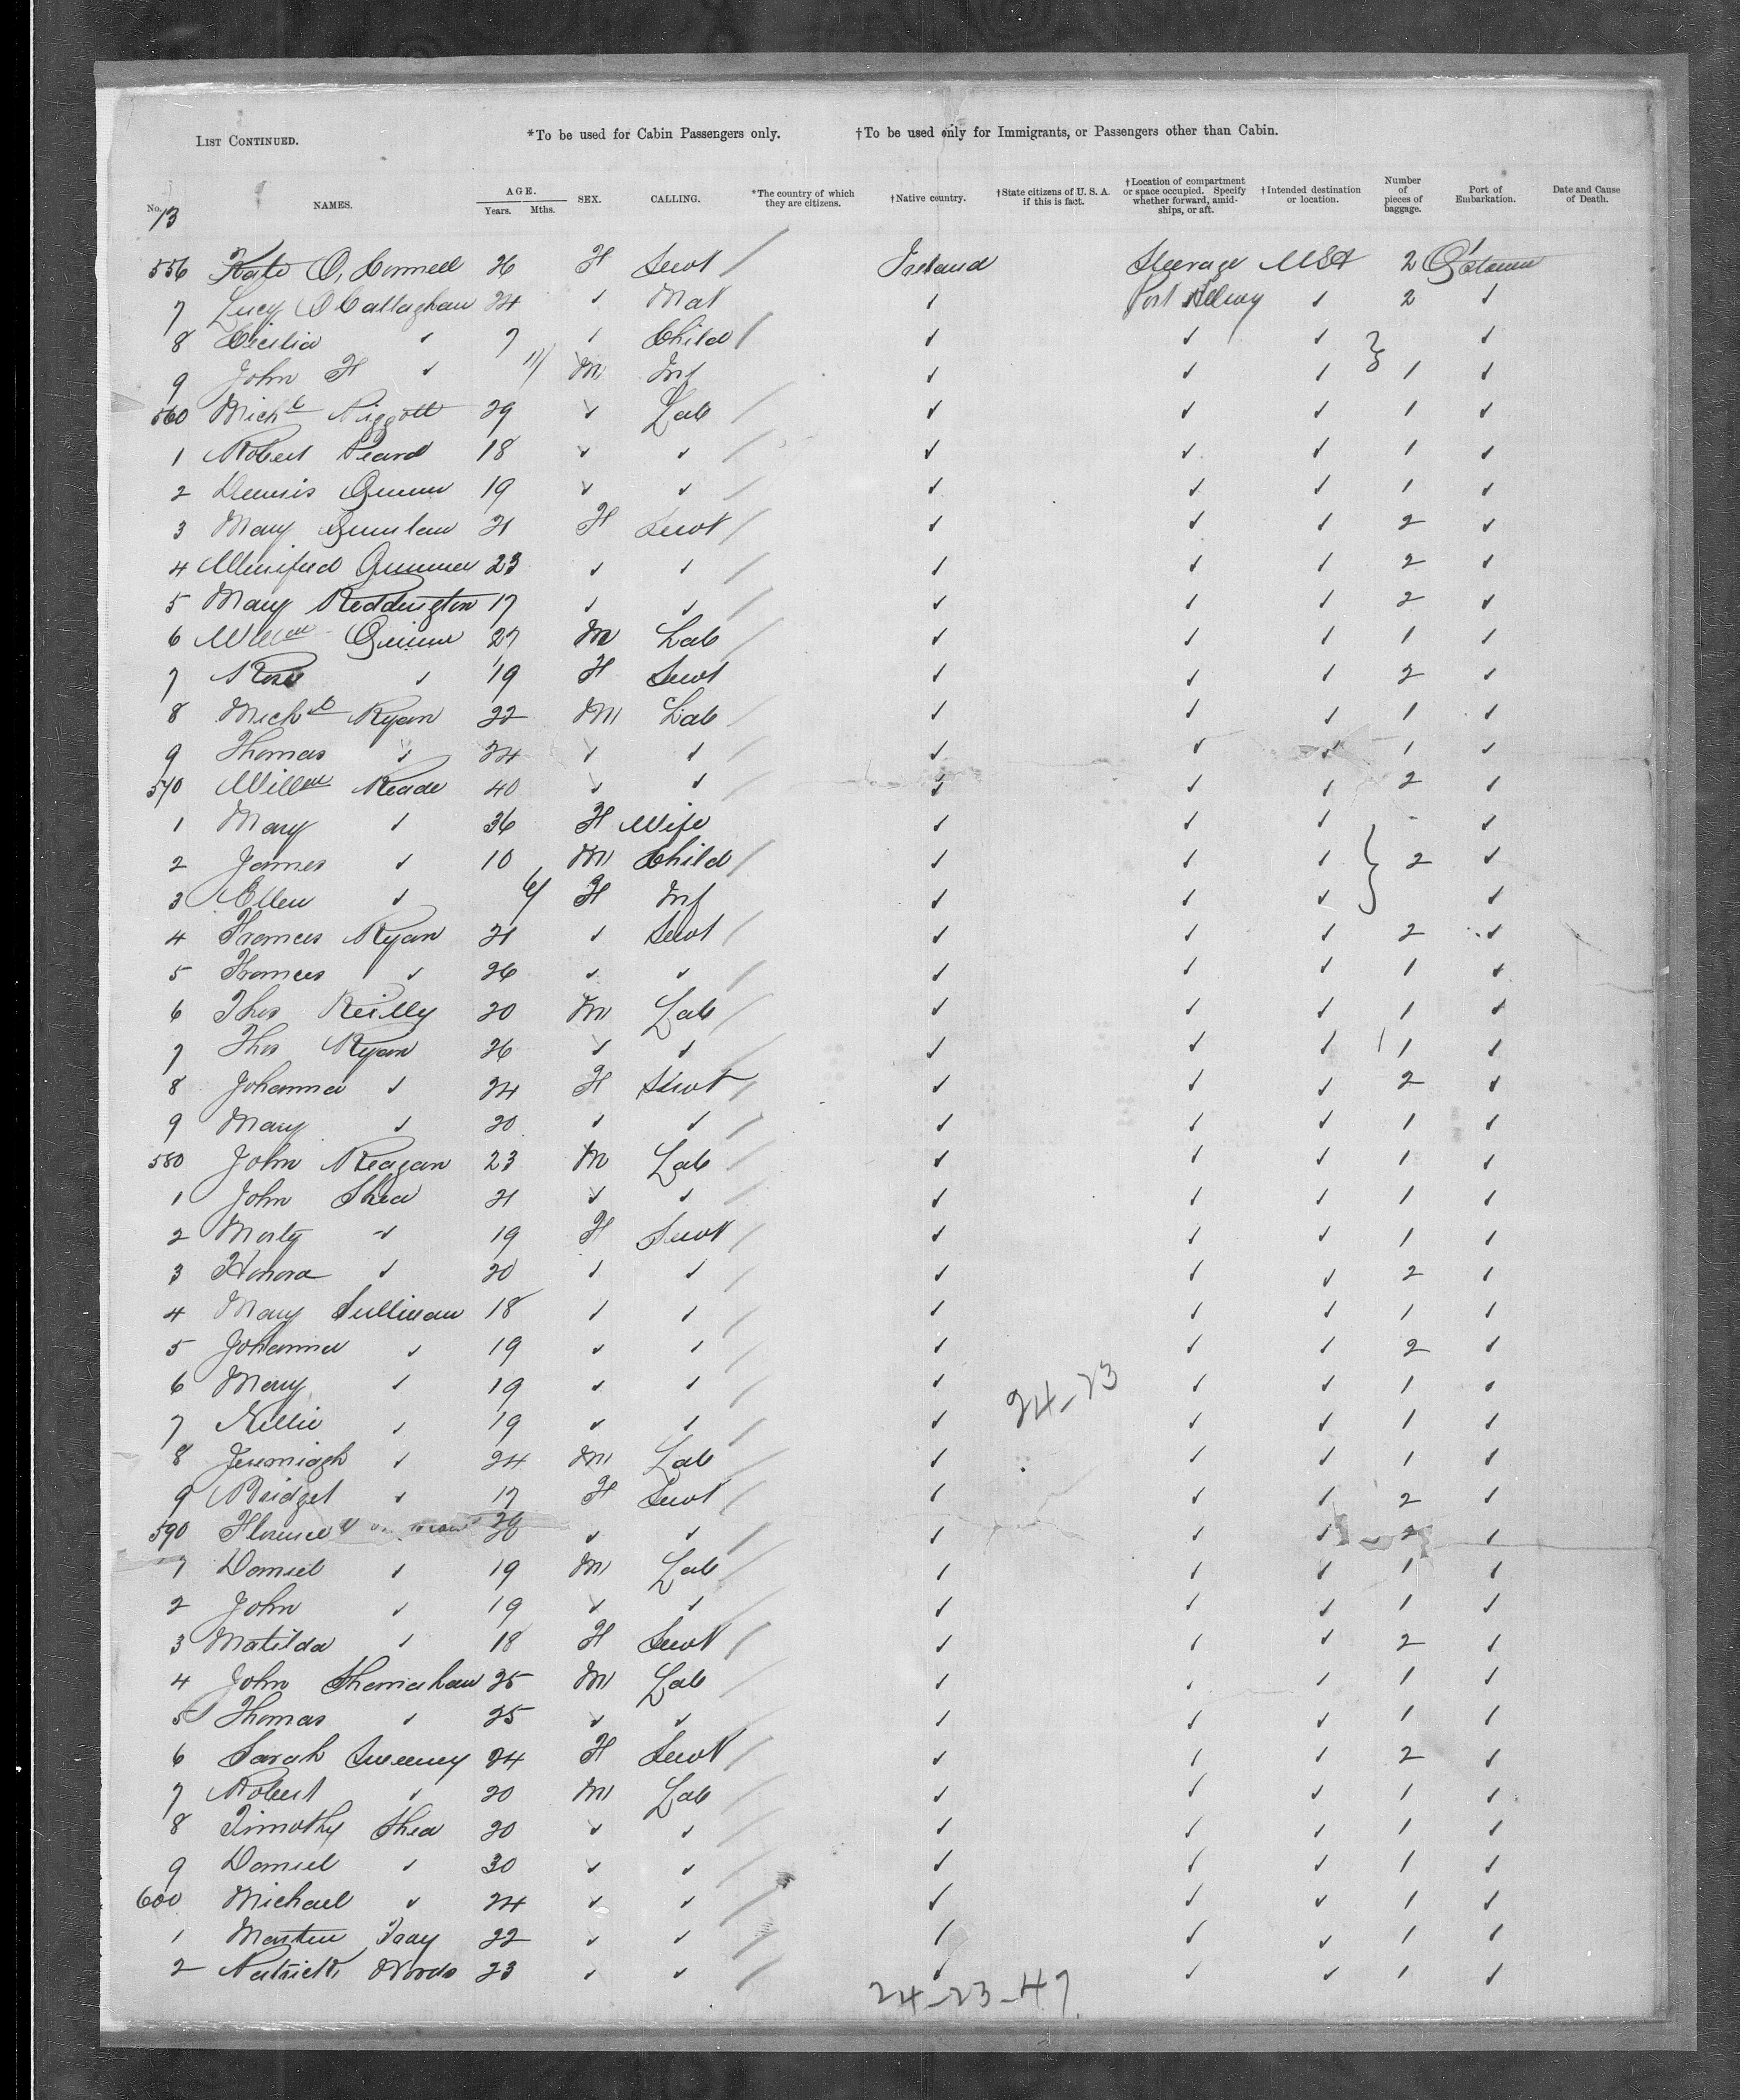 LIST CONTINUED. *To be used for Cabin Passengers only. †To be used only for Immigrants, or Passengers other than Cabin.
No. NAMES. AGE. Years. Mths. SEX. CALLING. *The country of which they are citizens. †Native country. †State citizens of U. S. A. if this is fact. †Location of compartment or space occupied. Specify whether forward, amidships, or aft. †Intended destination or location. Number of pieces of baggage. Port of Embarkation. Date and Cause of Death.
13
556 Kate O'Connell 26 F Servt / Ireland Steerage USA 2 Q'stown
7 Lucy O'Callaghan 24 ✓ Mat ✓ Port Alleway ✓ 2 ✓
8 Cicilia ✓ 7 ✓ Child / ✓ ✓ ✓ } ✓
9 John F ✓ 11/ M Inf ✓ ✓ ✓ 1 ✓
560 Michl 29 ✓ Lab / ✓ ✓ ✓ 1 ✓
1 Robert Peard 18 ✓ ✓ / ✓ ✓ ✓ 1 ✓
2 Dennis 19 ✓ ✓ / ✓ ✓ ✓ 1 ✓
3 Mary 21 F Servt / ✓ ✓ ✓ 2 ✓
4 Winifred 23 ✓ ✓ / ✓ ✓ ✓ 2 ✓
5 Mary Reddington 17 ✓ ✓ / ✓ ✓ ✓ 2 ✓
6 Willm 27 M Lab / ✓ ✓ ✓ 1 ✓
7 Rose ✓ 19 F Servt ✓ ✓ ✓ 2 ✓
8 Michl Ryan 22 M Lab / ✓ ✓ ✓ 1 ✓
9 Thomas ✓ 24 ✓ ✓ / ✓ ✓ ✓ 1 ✓
570 Willm Reade 40 ✓ ✓ / ✓ ✓ ✓ 2 ✓
1 Mary ✓ 36 F Wife ✓ ✓ ✓ ✓
2 James ✓ 10 M Child / ✓ ✓ ✓ } 2 ✓
3 Ellen ✓ 6/ F Inf ✓ ✓ ✓ ✓
4 Frances Ryan 21 ✓ Servt / ✓ ✓ ✓ 2 ✓
5 Frances ✓ 26 ✓ ✓ / ✓ ✓ ✓ 1 ✓
6 Thos Reilly 20 M Lab / ✓ ✓ ✓ 1 ✓
7 Thos Ryan 26 ✓ ✓ / ✓ ✓ ✓ 1 ✓
8 Johanna ✓ 24 F Servt / ✓ ✓ ✓ 2 ✓
9 Mary ✓ 20 ✓ ✓ / ✓ ✓ ✓ 1 ✓
580 John Reagan 23 M Lab / ✓ ✓ ✓ 1 ✓
1 John Shea 21 ✓ ✓ / ✓ ✓ ✓ 1 ✓
2 Morty ✓ 19 F Servt / ✓ ✓ ✓ 1 ✓
3 Honora ✓ 20 ✓ ✓ / ✓ ✓ ✓ 2 ✓
4 Mary Sullivan 18 ✓ ✓ / ✓ ✓ ✓ 1 ✓
5 Johanna ✓ 19 ✓ ✓ / ✓ ✓ ✓ 2 ✓
6 Mary ✓ 19 ✓ ✓ / ✓ 24-23 ✓ ✓ 1 ✓
7 Nellie ✓ 19 ✓ ✓ / ✓ ✓ ✓ 1 ✓
8 Jeremiagh ✓ 24 M Lab / ✓ ✓ ✓ 1 ✓
9 Bridget ✓ 17 F Servt / ✓ ✓ ✓ 2 ✓
590 Florence 20 ✓ ✓ / ✓ ✓ ✓ 2 ✓
1 Daniel ✓ 19 M Lab / ✓ ✓ ✓ 1 ✓
2 John ✓ 19 ✓ ✓ / ✓ ✓ ✓ 1 ✓
3 Matilda ✓ 18 F Servt / ✓ ✓ ✓ 2 ✓
4 John Shanahan 25 M Lab / ✓ ✓ ✓ 1 ✓
5 Thomas ✓ 25 ✓ ✓ / ✓ ✓ ✓ 1 ✓
6 Sarah Sweeney 24 F Servt / ✓ ✓ ✓ 2 ✓
7 Robert ✓ 20 M Lab / ✓ ✓ ✓ 1 ✓
8 Timothy Shea 20 ✓ ✓ / ✓ ✓ ✓ 1 ✓
9 Daniel ✓ 30 ✓ ✓ / ✓ ✓ ✓ 1 ✓
600 Michael ✓ 24 ✓ ✓ / ✓ ✓ ✓ 1 ✓
1 Martin 22 ✓ ✓ / ✓ ✓ ✓ 1 ✓
2 Patrick Woods 23 ✓ ✓ / ✓ ✓ ✓ 1 ✓
24-23-47